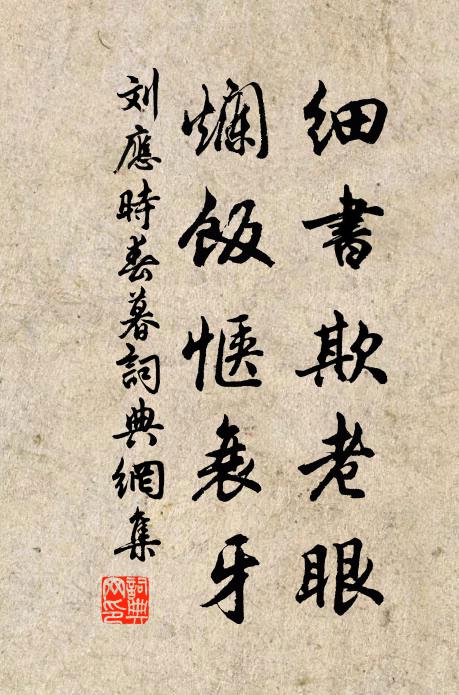 細書欺老眼
爛飯愜衰牙
刘應時春暮詞典網集
詞典網印